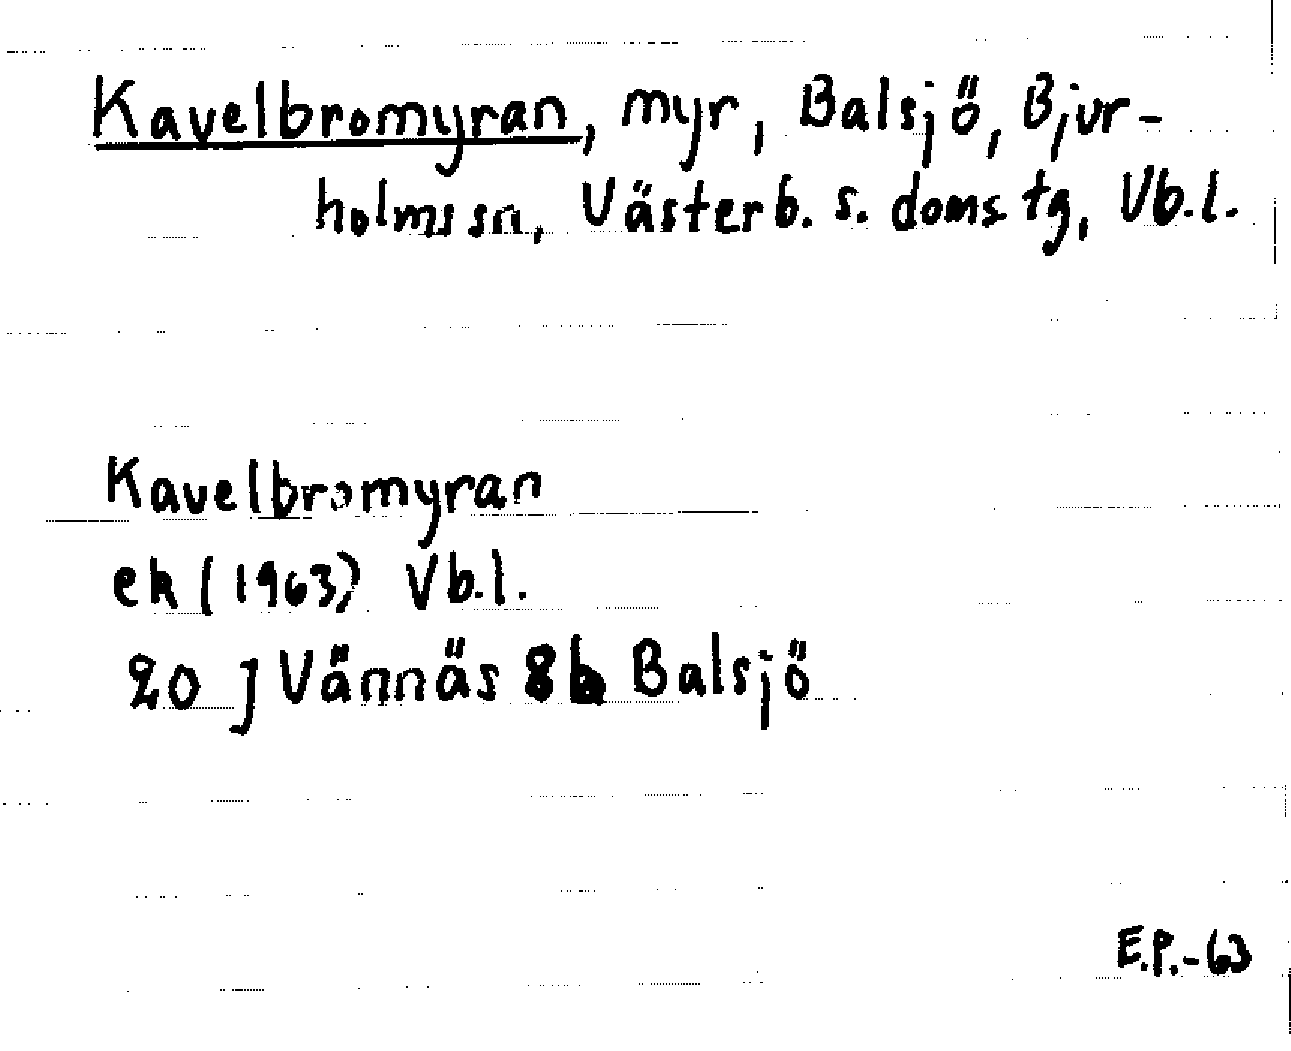 Kavelbromyran, myr, Balsjö, Bjur-
holms sn, Västerb. s. doms. tg, Vb.l.
Kavelbromyran
ek (1963) Vb.l.
20 J Vännäs 8b Balsjö
E.P.-63